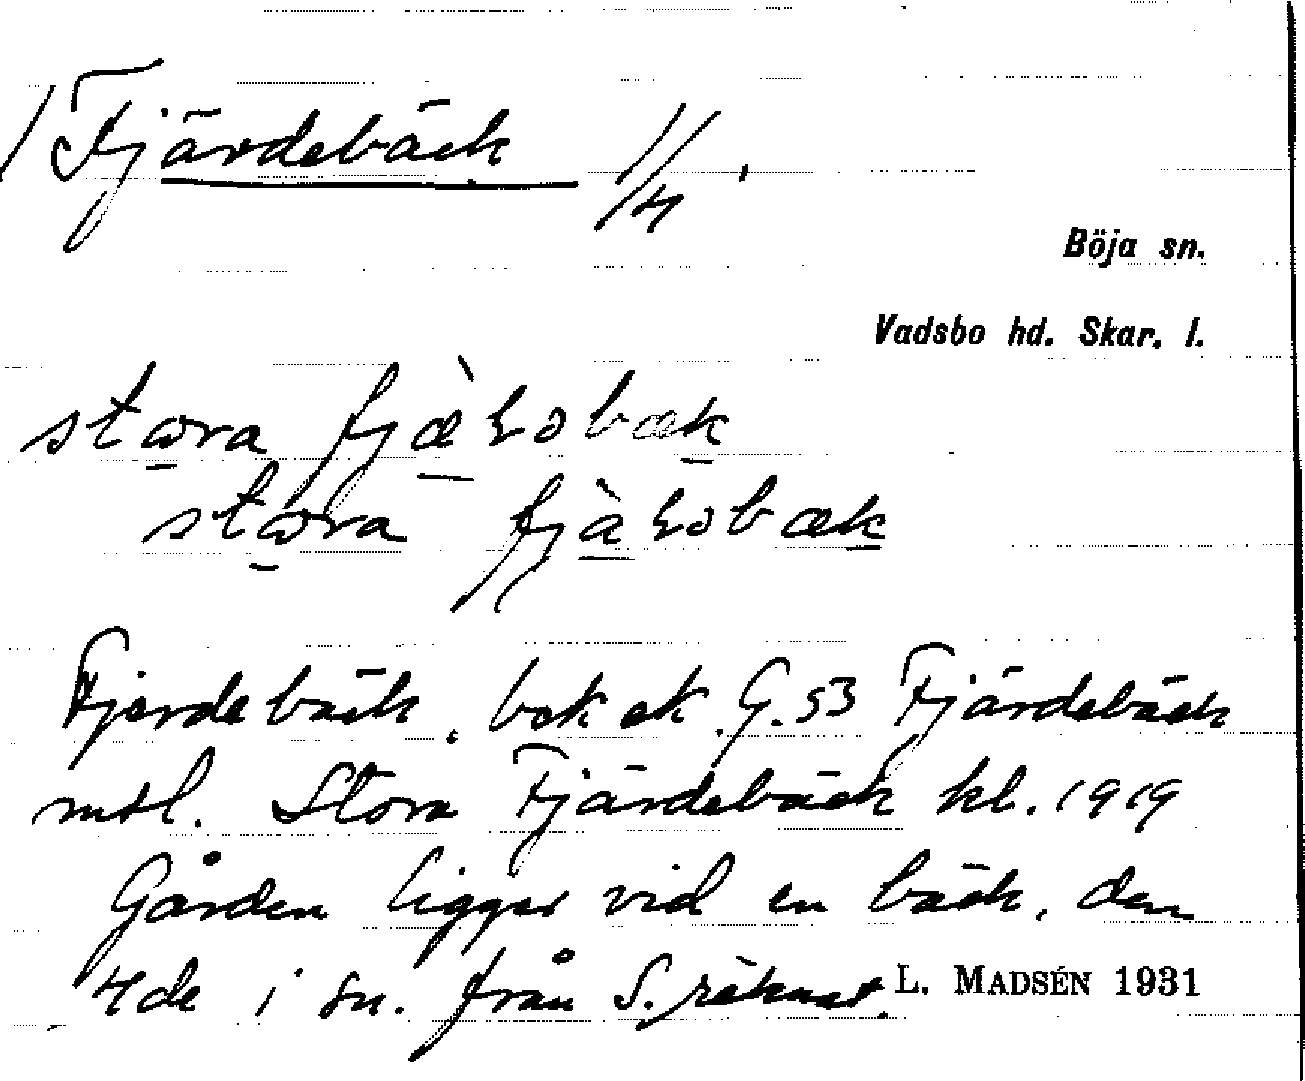 /Fjärdebäck 1/4
Böja sn.
Vadsbo hd. Skar. l.
stora fjæ̀ꞎobæk
stora fjàꞎobæk
Fjerdebäck, bok ek G.53 Fjärdebäck
mtl. Stora Fjärdebäck kl. 1919
Gården ligger vid en bäck, den
4de i sn. från S. räknat.
L. MADSÉN 1931